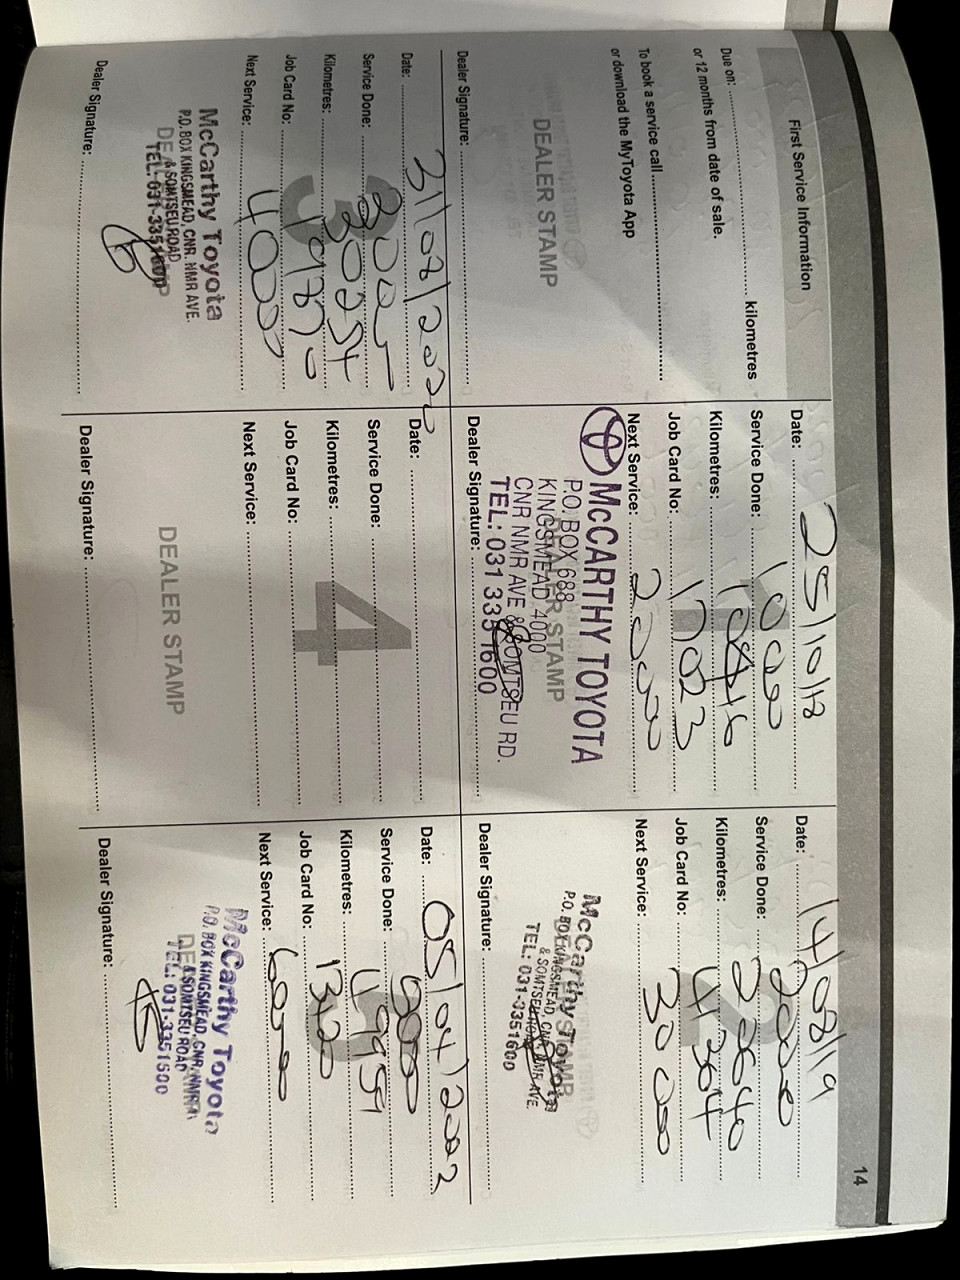 14
First Service Information
Due on: kilometres
or 12 months from date of sale.
To book a service call
or download the MyToyota App
DEALER STAMP
Dealer Signature:
Date: 25/10/18
Service Done: 10000
Kilometres:
Job Card No: 17023
Next Service: 20000
McCARTHY TOYOTA
P.O. BOX 688
KINGSMEAD 4000
DEALER STAMP
CNR NMR AVE & SOMTSEU RD.
TEL: 031 335 1600
Dealer Signature:
Date: 14/08/19
Service Done: 20000
Kilometres: 20640
Job Card No: 4364
Next Service: 30000
McCarthy Toyota
P.O. BOX KINGSMEAD, CNR. NMR AVE.
& SOMTSEU ROAD
TEL: 031-3351600
Dealer Signature:
3
Date: 31/08/2020
Service Done: 30000
Kilometres: 30254
Job Card No:
Next Service: 40000
McCarthy Toyota
P.O. BOX KINGSMEAD, CNR. NMR AVE.
& SOMTSEU ROAD
TEL: 031-3351600
Dealer Signature:
4
Date:
Service Done:
Kilometres:
Job Card No:
Next Service:
DEALER STAMP
Dealer Signature:
Date: 05/04/2002
Service Done:
Kilometres: 49959
Job Card No:
Next Service: 60000
McCarthy Toyota
P.O. BOX KINGSMEAD, CNR. NMR
& SOMTSEU ROAD
TEL: 031-3351600
Dealer Signature: